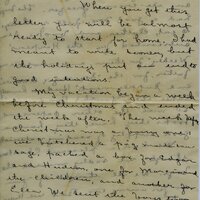 When you get this
letter you will be almost
ready to start for home. I had
meant to write sooner but
the holidays put an end to
good intentions.
My vacation began a week
before Christmas and ended
the week after. The week before
Christmas was a busy one
we butchered a pig made sau-
sage, packed a box for Edgar
and Hudson, one for Margaret and
the children, and another for
Ellen. We sent the boys